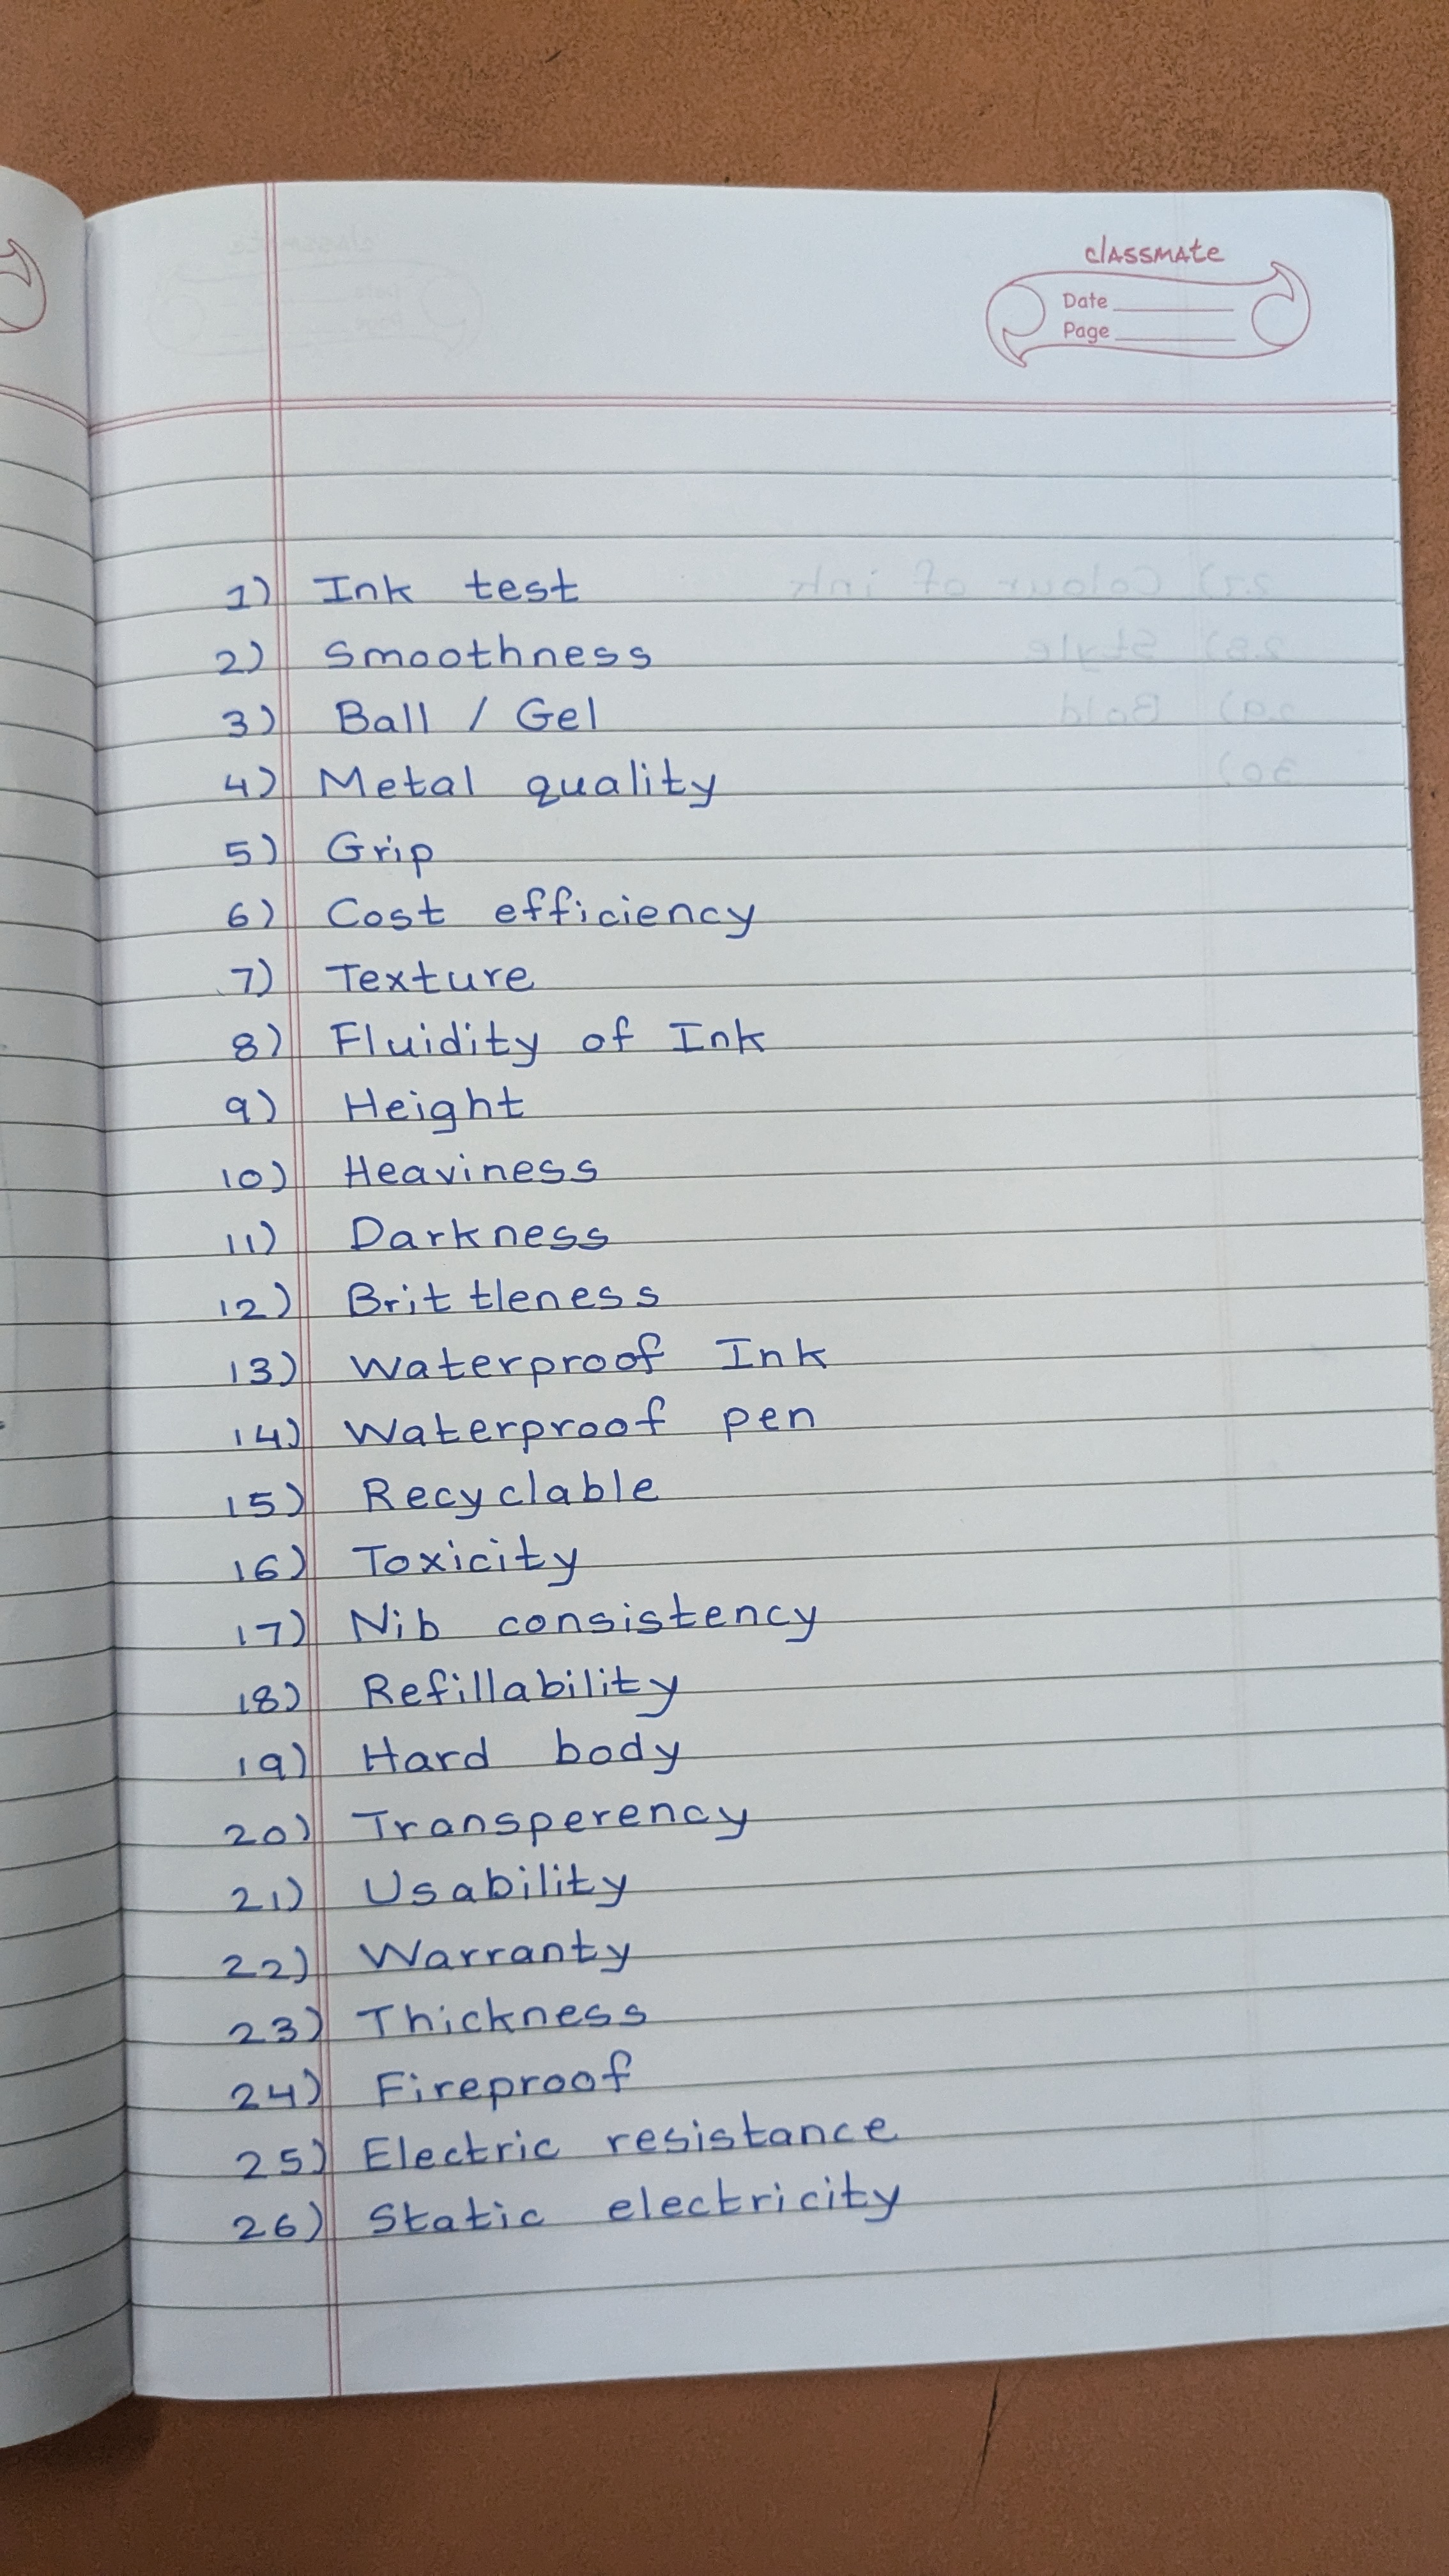 classmate
Date
Page
1) Ink test
2) Smoothness
3) Ball / Gel
4) Metal quality
5) Grip
6) Cost efficiency
7) Texture
8) Fluidity of Ink
9) Height
10) Heaviness
11) Darkness
12) Brittleness
13) Waterproof Ink
14) Waterproof pen
15) Recyclable
16) Toxicity
17) Nib consistency
18) Refillability
19) Hard body
20) Transperency
21) Usability
22) Warranty
23) Thickness
24) Fireproof
25) Electric resistance
26) Static electricity